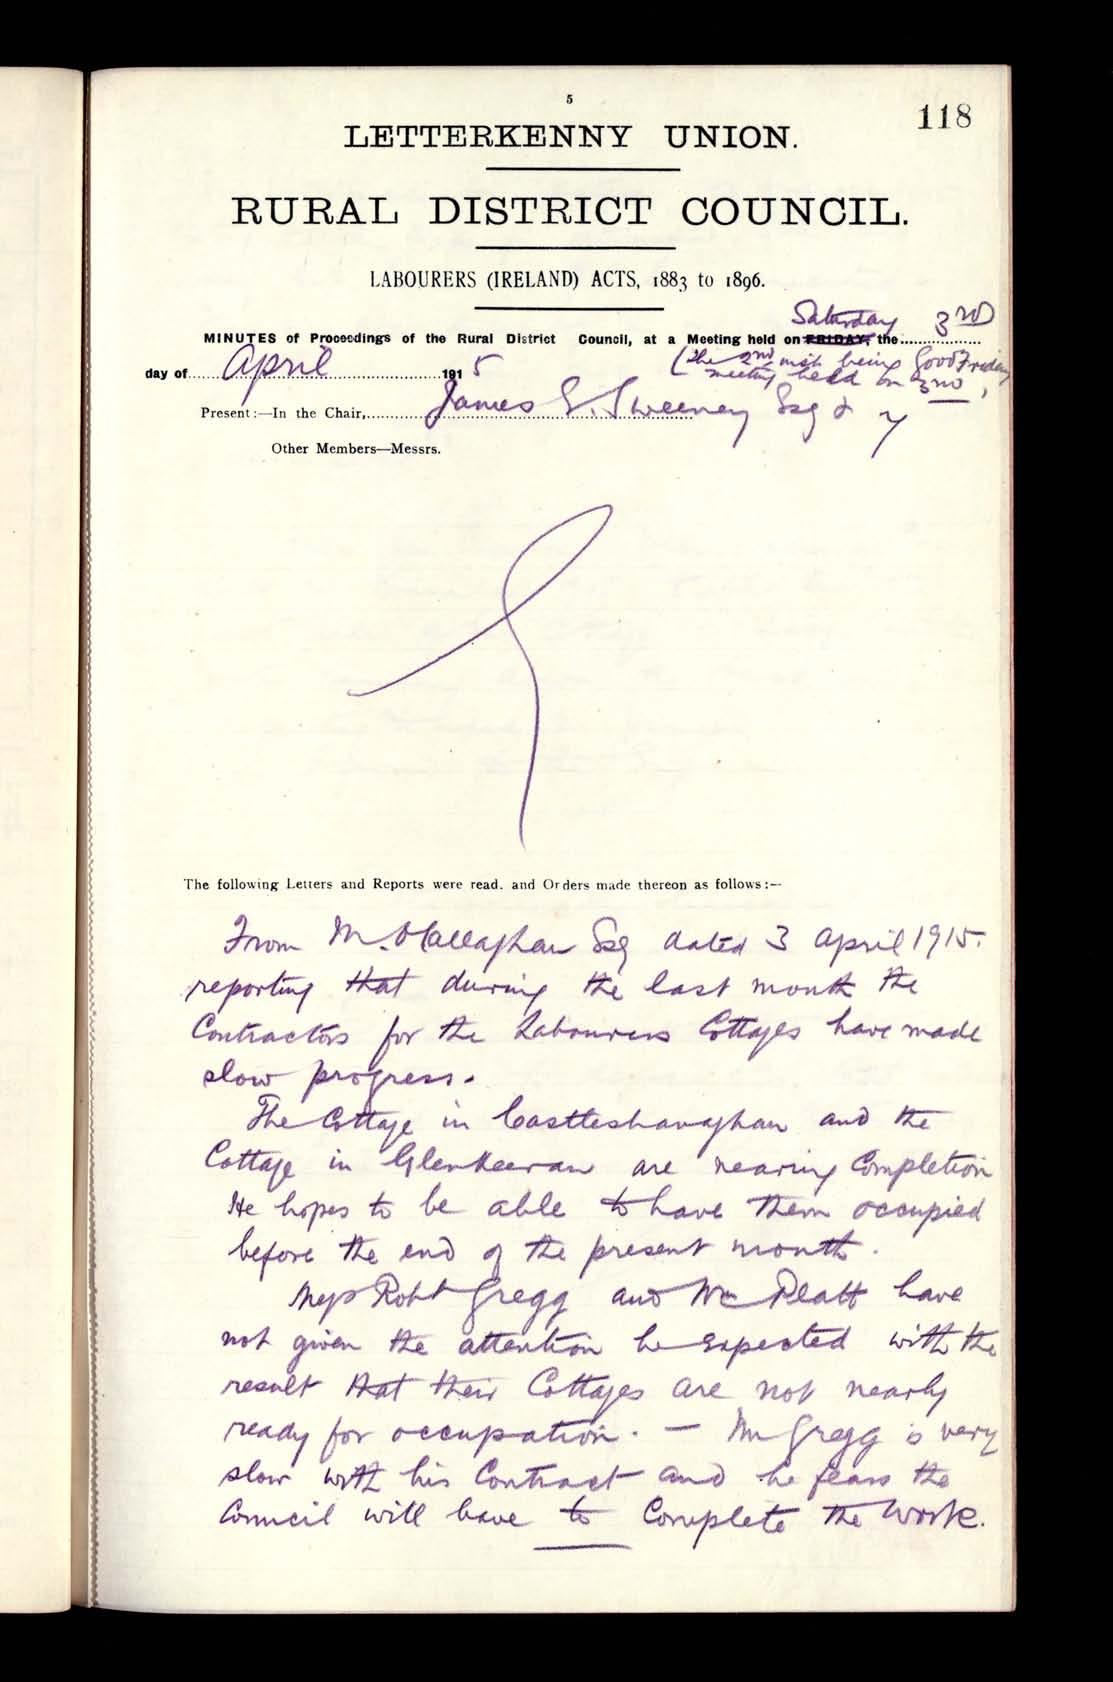 5
118
LETTERKENNY UNION.
RURAL DISTRICT COUNCIL.
LABOURERS (IRELAND) ACTS, 1883 to 1896.
Saturday 3rd
MINUTES of Proceedings of the Rural District Council, at a Meeting held on FRIDAY, the
(the 2nd inst being Good Friday
day of April 1915
meeting held on 3rd,
Present:—In the Chair, James G. Sweeney Esq
Other Members—Messrs.
The following Letters and Reports were read. and Orders made thereon as follows:—
From M. O'Callaghan Esq dated 3 April 1915.
reporting that during the last month the
Contractors for the Labourers Cottages have made
slow progress.
The Cottage in Castleshanaghan and the
Cottage in Glenkeeran are nearing Completion
He hopes to be able to have them occupied
before the end of the present month.
Messrs Robt Gregg and Wm Platt have
not given the attention he expected with the
result that their Cottages are not nearly
ready for occupation. — Mr Gregg is very
slow with his Contract and he fears the
Council will have to Complete the work.